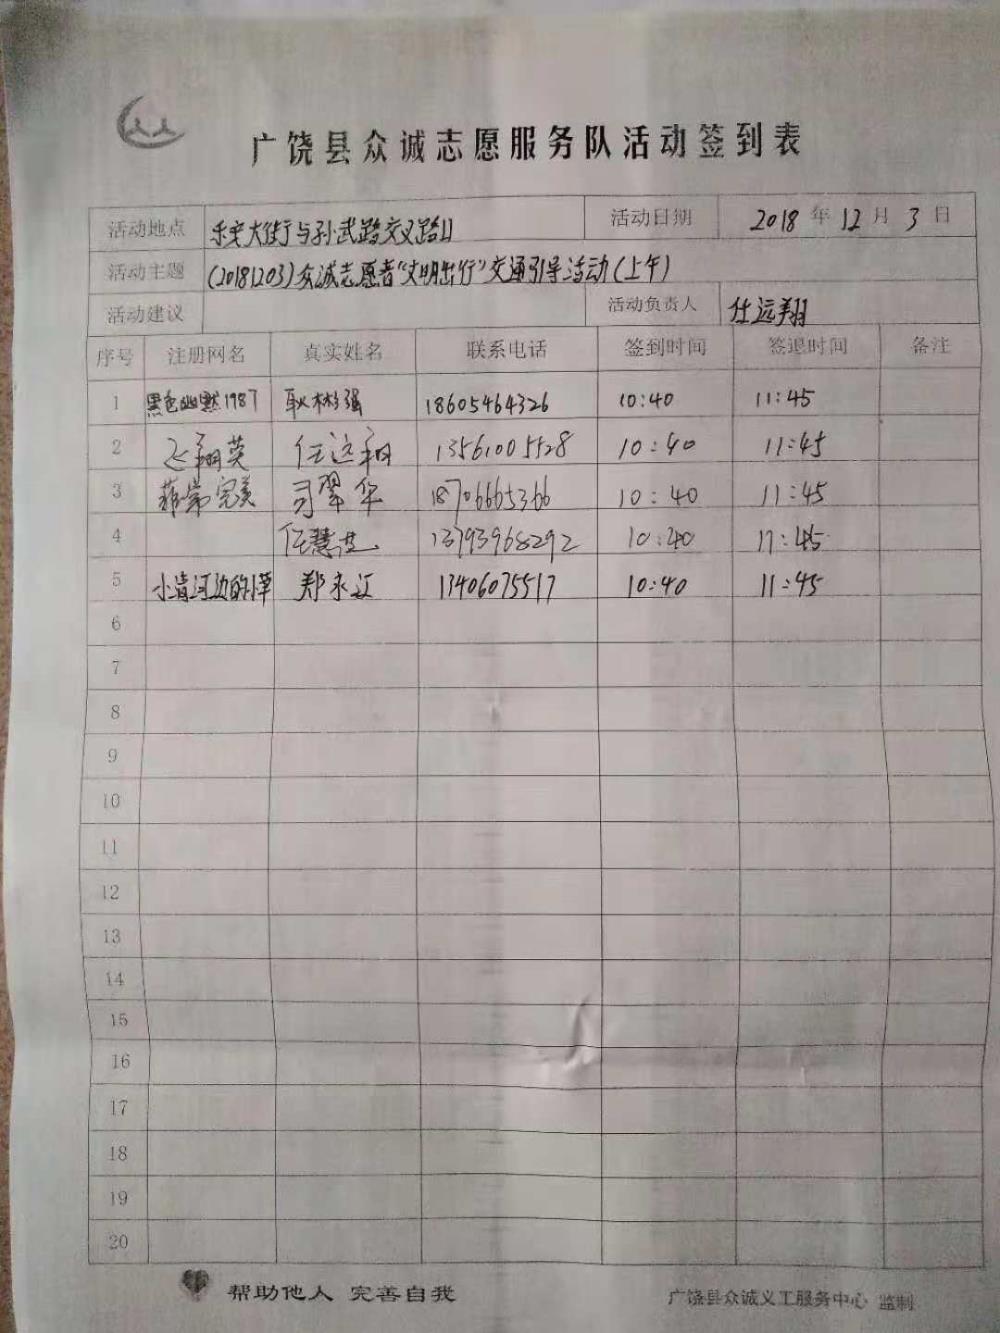 广饶县众诚志愿服务队活动签到表
活动地点 乐安大街与孙武路交叉路口 活动日期 2018 年 12 月 3 日
活动主题 (20181203)众诚志愿者“文明出行”交通引导活动(上午)
活动建议 活动负责人 任远翔
序号 注册网名 真实姓名 联系电话 签到时间 签退时间 备注
1 黑色幽默1987 耿彬强 18605464326 10:40 11:45
2 飞翔英 任远翔 13561005528 10:40 11:45
3 完美 司翠华 18706665366 10:40 11:45
4 任慧芝 13793968292 10:40 11:45
5 小清河边的小草 郑永江 13406075517 10:40 11:45
6
7
8
9
10
11
12
13
14
15
16
17
18
19
20
帮助他人 完善自我
广饶县众诚义工服务中心 监制